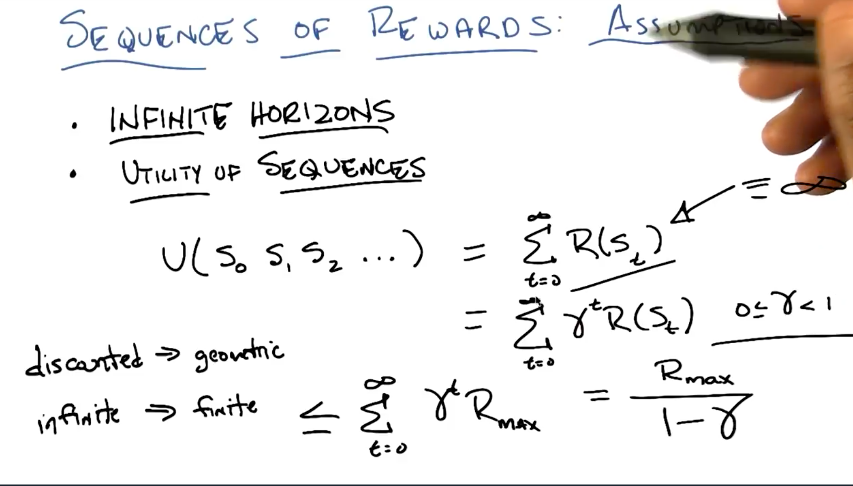 SEQUENCES OF REWARDS: ASSUMPTIONS
• INFINITE HORIZONS
• UTILITY OF SEQUENCES
U(S₀ S₁ S₂ ...) = ∑_{t=0}^{∞} R(S_t) ≡ ∞
= ∑_{t=0}^{∞} γ^t R(S_t) 0 ≤ γ < 1
discounted → geometric
infinite ⇒ finite ≤ ∑_{t=0}^{∞} γ^t R_max = R_max / (1-γ)